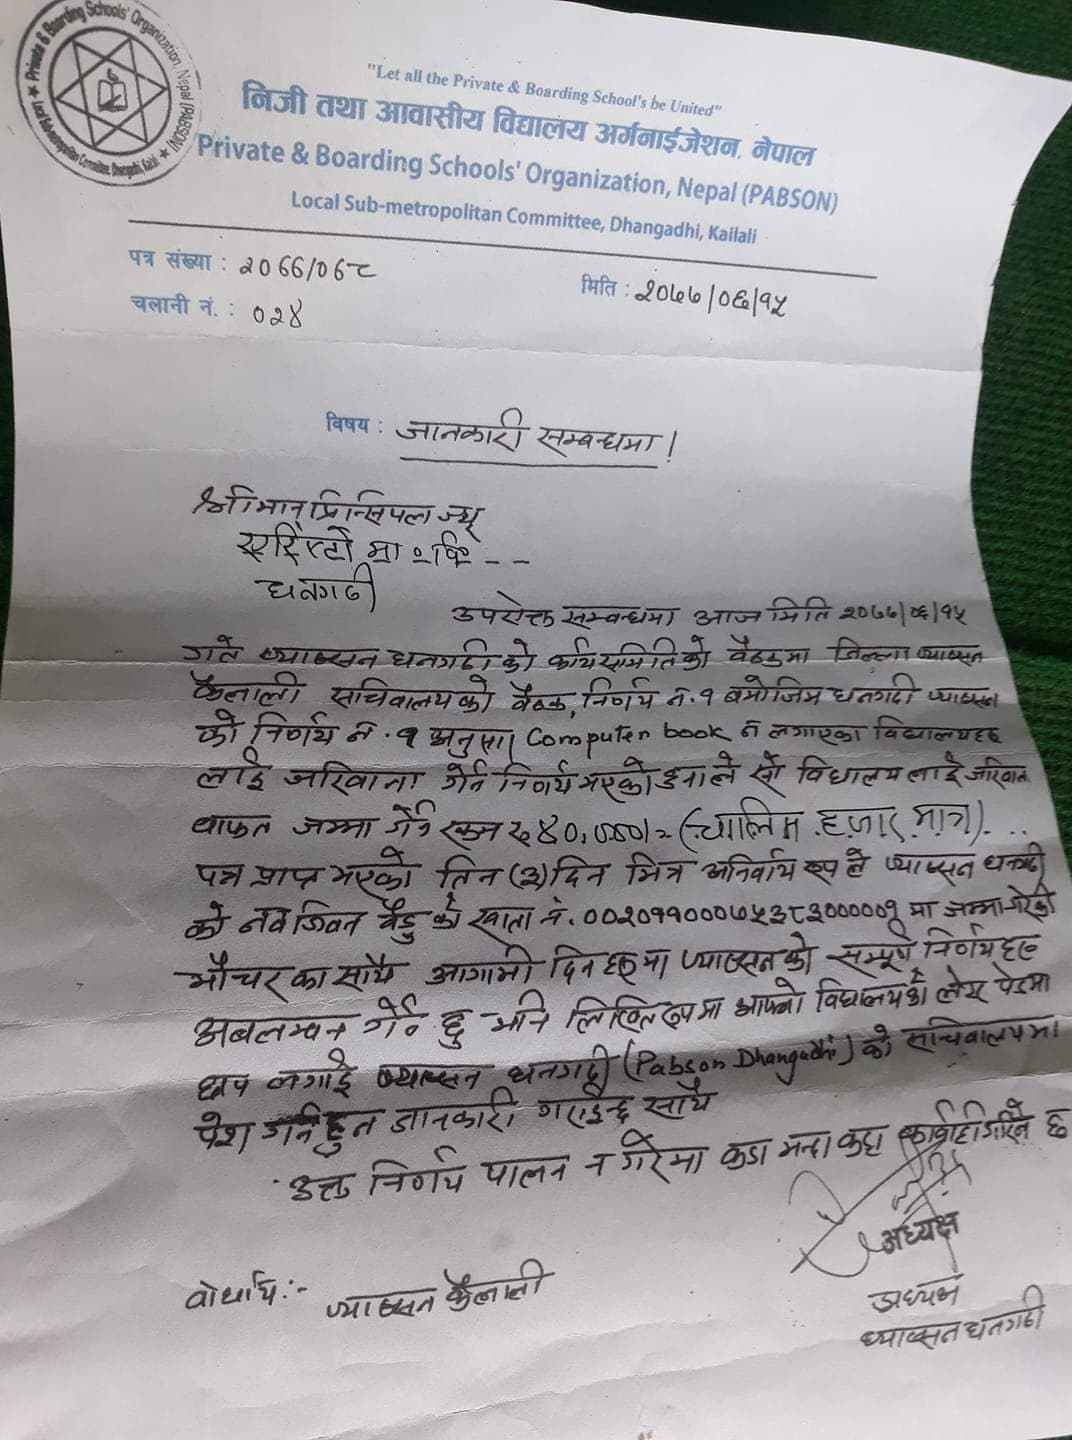 Private & Boarding Schools' Organization, Nepal (PABSON)
Local Sub-metropolitan Committee, Dhangadhi, Kailali
"Let all the Private & Boarding School's be United"
निजी तथा आवासीय विद्यालय अर्गनाईजेशन, नेपाल
Private & Boarding Schools' Organization, Nepal (PABSON)
Local Sub-metropolitan Committee, Dhangadhi, Kailali
पत्र संख्या : २०७७/०७८
मिति : २०७७/०६/१५
चलानी नं. : ०२४
विषय : जानकारी सम्बन्धमा !
श्रीमान् प्रिन्सिपल ज्यू
एरिस्टो मा॰वि॰ --
धनगढी
उपरोक्त सम्बन्धमा आज मिति २०७७/०६/१५
गते प्याब्सन धनगढी को कार्यसमितिको बैठकमा जिल्ला प्याब्सन
कैलाली सचिवालयको बैठक, निर्णय नं. १ बमोजिम धनगढी प्याब्सन
को निर्णय नं. १ अनुसार Computer book न लगाएका विद्यालयहरु
लाई जरिवाना गर्ने निर्णय भएको हुनाले सो विद्यालय लाई जरिवाना
वाफत जम्मा गर्ने रकम रु ४०,०००/= (चालिस हजार मात्र) ...
पत्र प्राप्त भएको तिन (३) दिन भित्र अनिवार्य रूप ले प्याब्सन धनगढी
को नव जिवन बैङ्क को खाता नं. मा जम्मा गरेको
भौचर का साथै आगामी दिन हरुमा प्याब्सन को सम्पूर्ण निर्णय हरु
अबलम्बन गर्ने छु भनि लिखित रुपमा आफ्नो विद्यालयको लेटर पेडमा
छाप लगाई प्याब्सन धनगढी (Pabson Dhangadhi) को सचिवालयमा
पेश गर्नु हुन जानकारी गराईन्छ साथै
उक्त निर्णय पालन न गरेमा कडा भन्दा कडा कार्वाही गरिने छ
अध्यक्ष
अध्यक्ष
प्याब्सन धनगढी
वोधार्थ :- प्याब्सन कैलाली